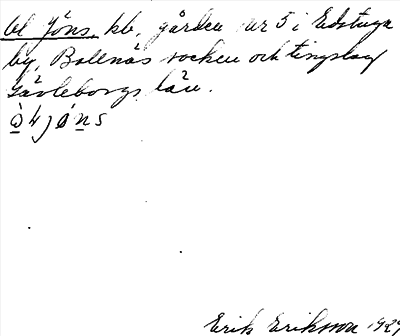 Ol Jöns, kb, gården nr 5 i Edstuga
by, Bollnäs socken och tingslag
Gävleborgs län.
Erik Eriksson